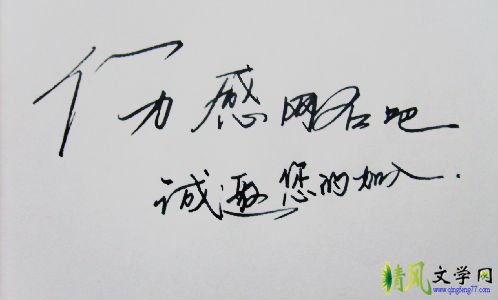 伤感网名吧
诚邀您的加入.
清风文学网
www.qingfeng77.com